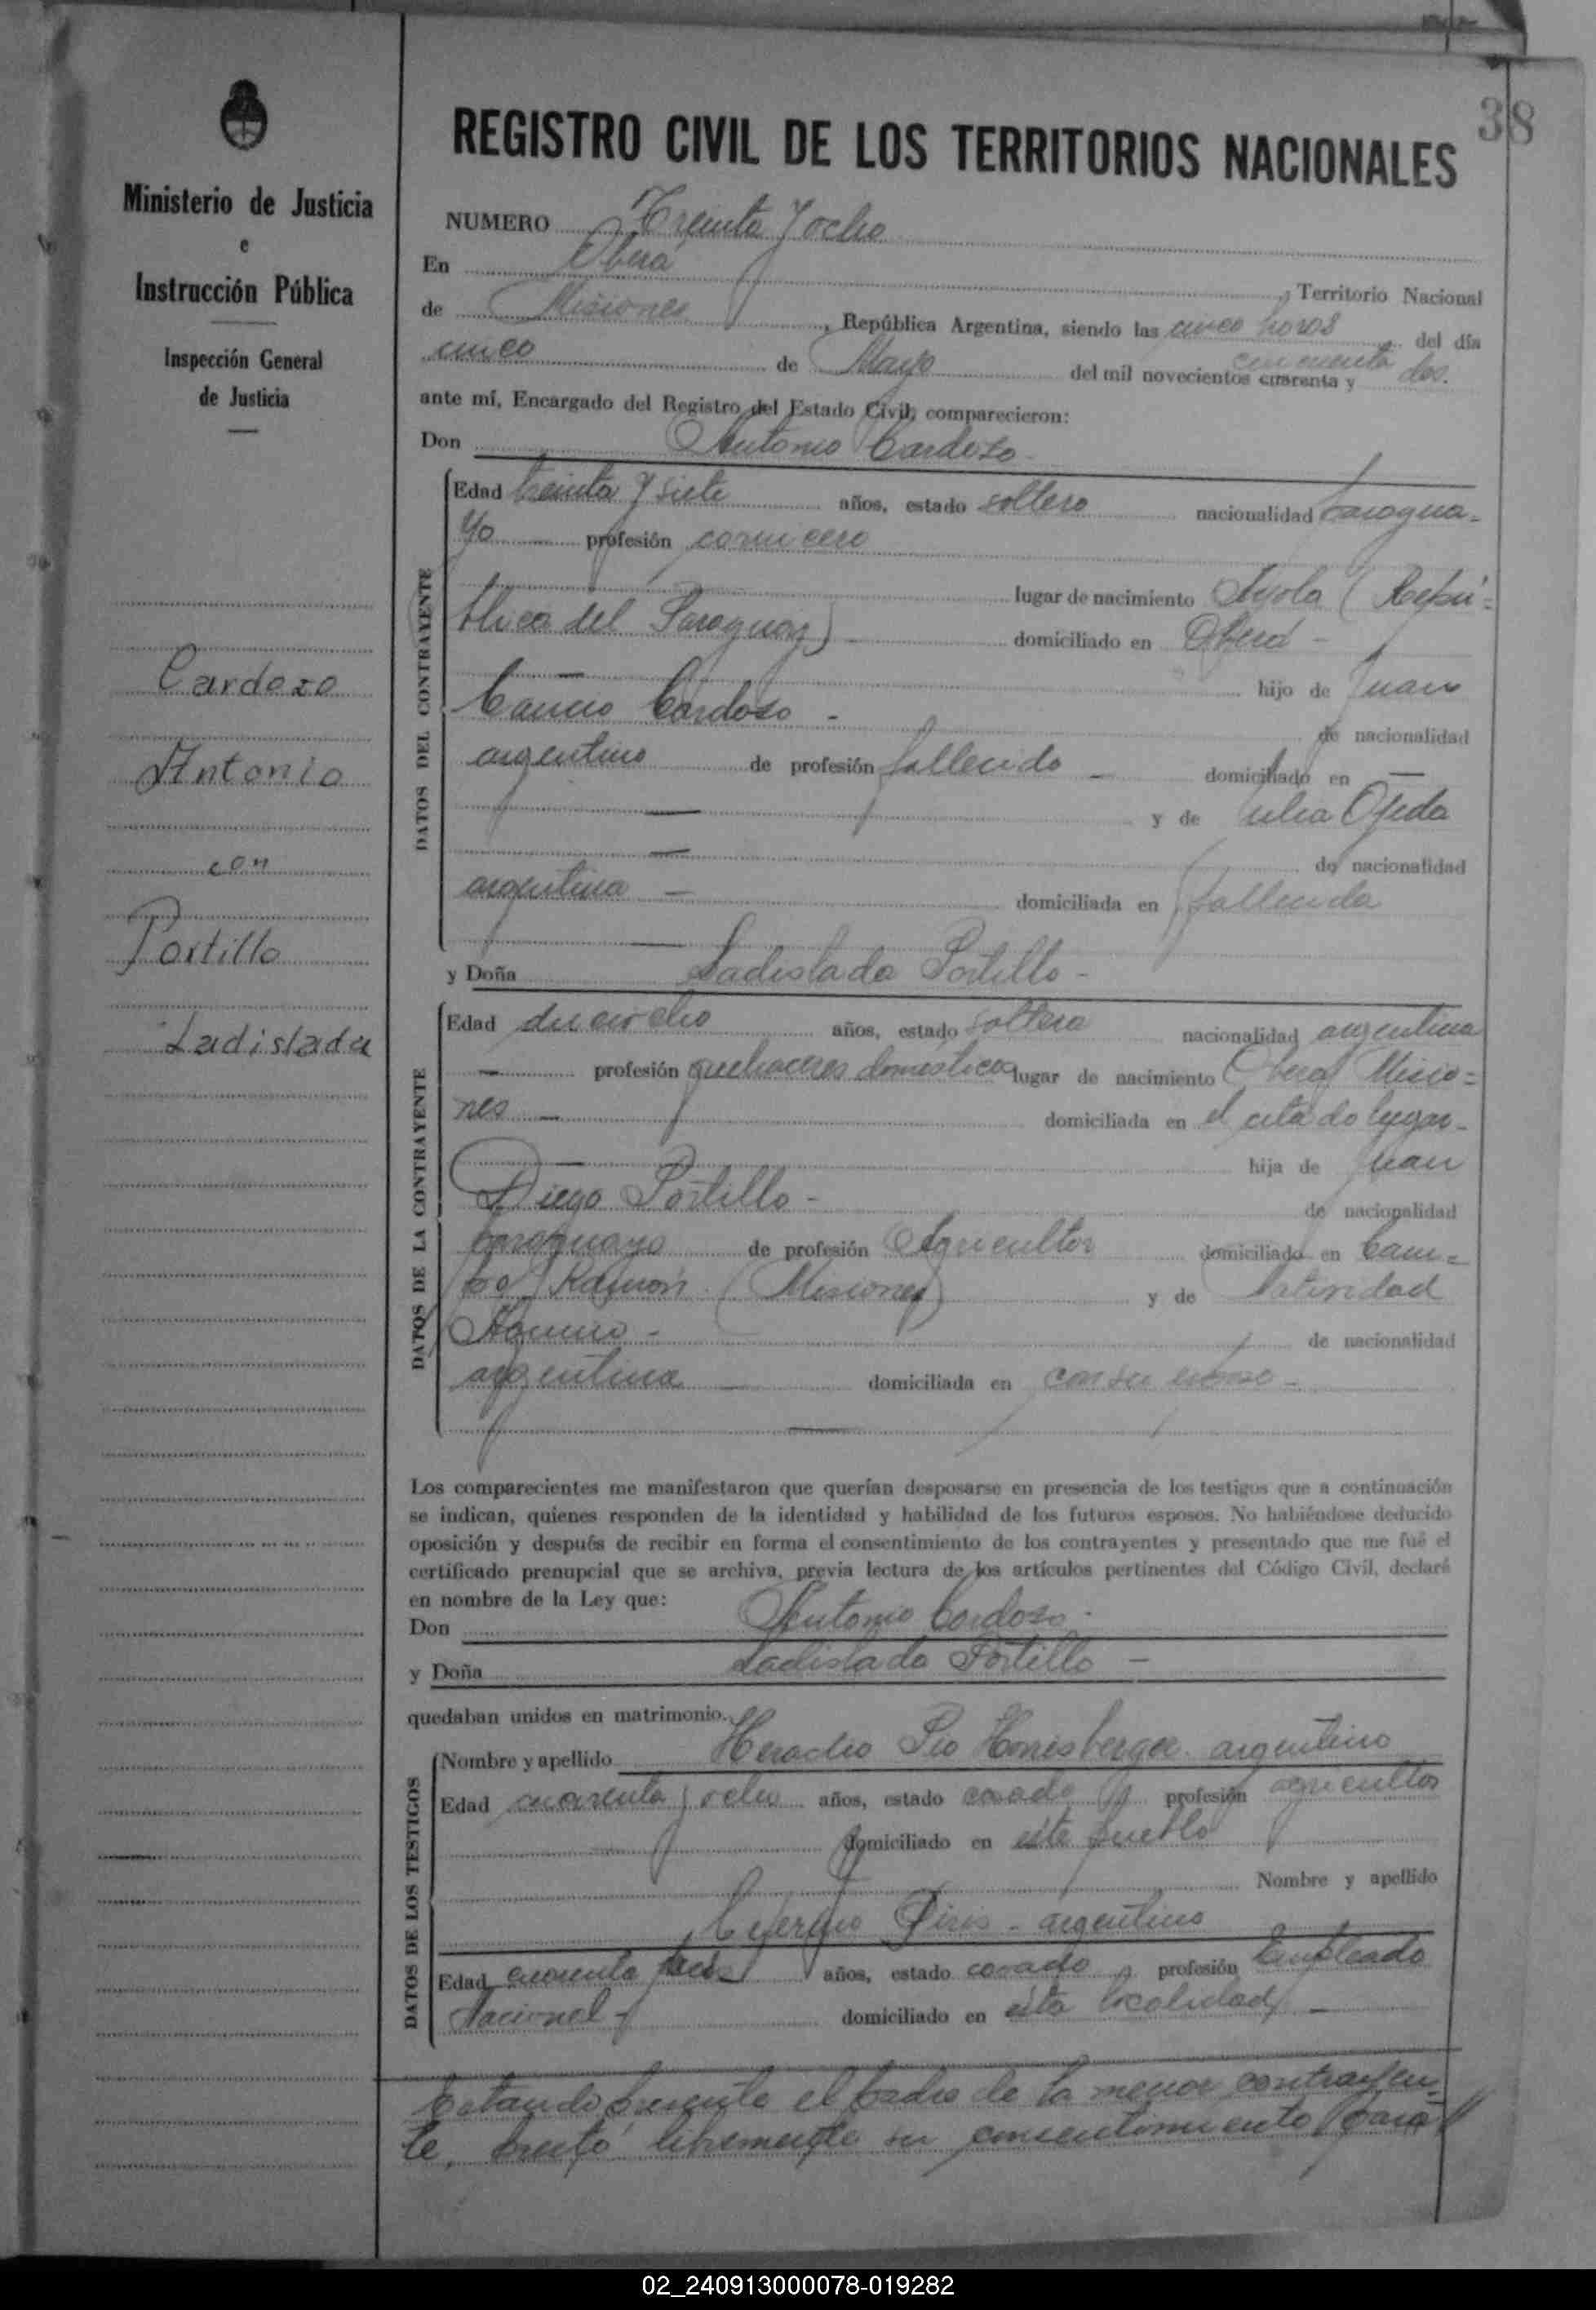 38
REGISTRO CIVIL DE LOS TERRITORIOS NACIONALES
Ministerio de Justicia
e
Instrucción Pública
Inspección General
de Justicia
NUMERO Treinta y ocho
En Oberá
, Territorio Nacional
de Misiones, República Argentina, siendo las cinco horas del día
cinco de Mayo del mil novecientos cuarenta y cincuenta dos.
ante mí, Encargado del Registro del Estado Civil, comparecieron:
Don Antonio Cardozo -
DATOS DEL CONTRAYENTE
Edad treinta y siete años, estado soltero nacionalidad Paragua-
yo profesión carnicero
lugar de nacimiento Ayola (Repú-
blica del Paraguay) domiciliado en Oberá -
hijo de Juan
Cancio Cardozo -
de nacionalidad
argentino de profesión fallecido - domiciliado en -
y de Julia Ojeda
de nacionalidad
argentina - domiciliada en fallecida
y Doña Ladislada Portillo -
Cardozo
Antonio
con
Portillo
Ladislada
DATOS DE LA CONTRAYENTE
Edad dieciocho años, estado soltera nacionalidad argentina
- profesión quehaceres domésticos lugar de nacimiento Oberá Misio=
nes - domiciliada en el citado lugar -
hija de Juan
Diego Portillo -
de nacionalidad
paraguayo de profesión Agricultor domiciliado en Cam=
po Ramón (Misiones) y de Natividad
de nacionalidad
argentina - domiciliada en con su esposo -
Los comparecientes me manifestaron que querían desposarse en presencia de los testigos que a continuación
se indican, quienes responden de la identidad y habilidad de los futuros esposos. No habiéndose deducido
oposición y después de recibir en forma el consentimiento de los contrayentes y presentado que me fué el
certificado prenupcial que se archiva, previa lectura de los artículos pertinentes del Código Civil, declaré
en nombre de la Ley que:
Don Antonio Cardozo -
y Doña Ladislada Portillo -
quedaban unidos en matrimonio.
DATOS DE LOS TESTIGOS
Nombre y apellido Heraclio Pío Honisberger argentino
Edad cuarenta y ocho años, estado casado y profesión agricultor
domiciliado en este pueblo
Nombre y apellido
Ceferino Piris - argentino
Edad cuarenta años, estado casado y profesión Empleado
Nacional - domiciliado en esta localidad -
Estando presente el padre de la menor contrayen-
te, prestó libremente su consentimiento para //
02_240913000078-019282